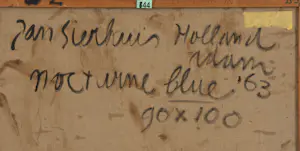 144
Jan Sierhuis Holland
nocturne blue '63
90 x 100